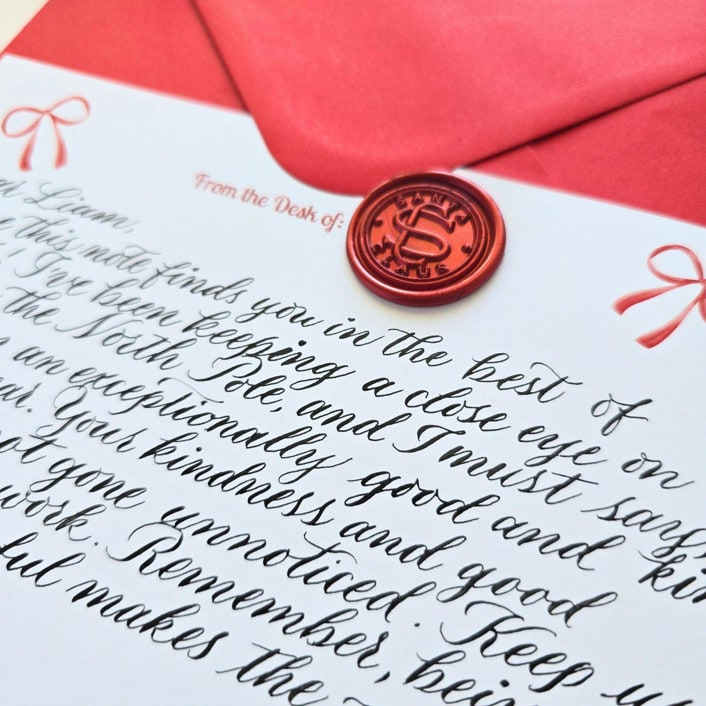 From the Desk of:
SANTA
SC
CLAUS
Liam,
this note finds you in the best of
I've been keeping a close eye on
the North Pole, and I must say,
an exceptionally good and kin
ar. Your kindness and good
not gone unnoticed. Keep u
work. Remember, bein
ful makes the